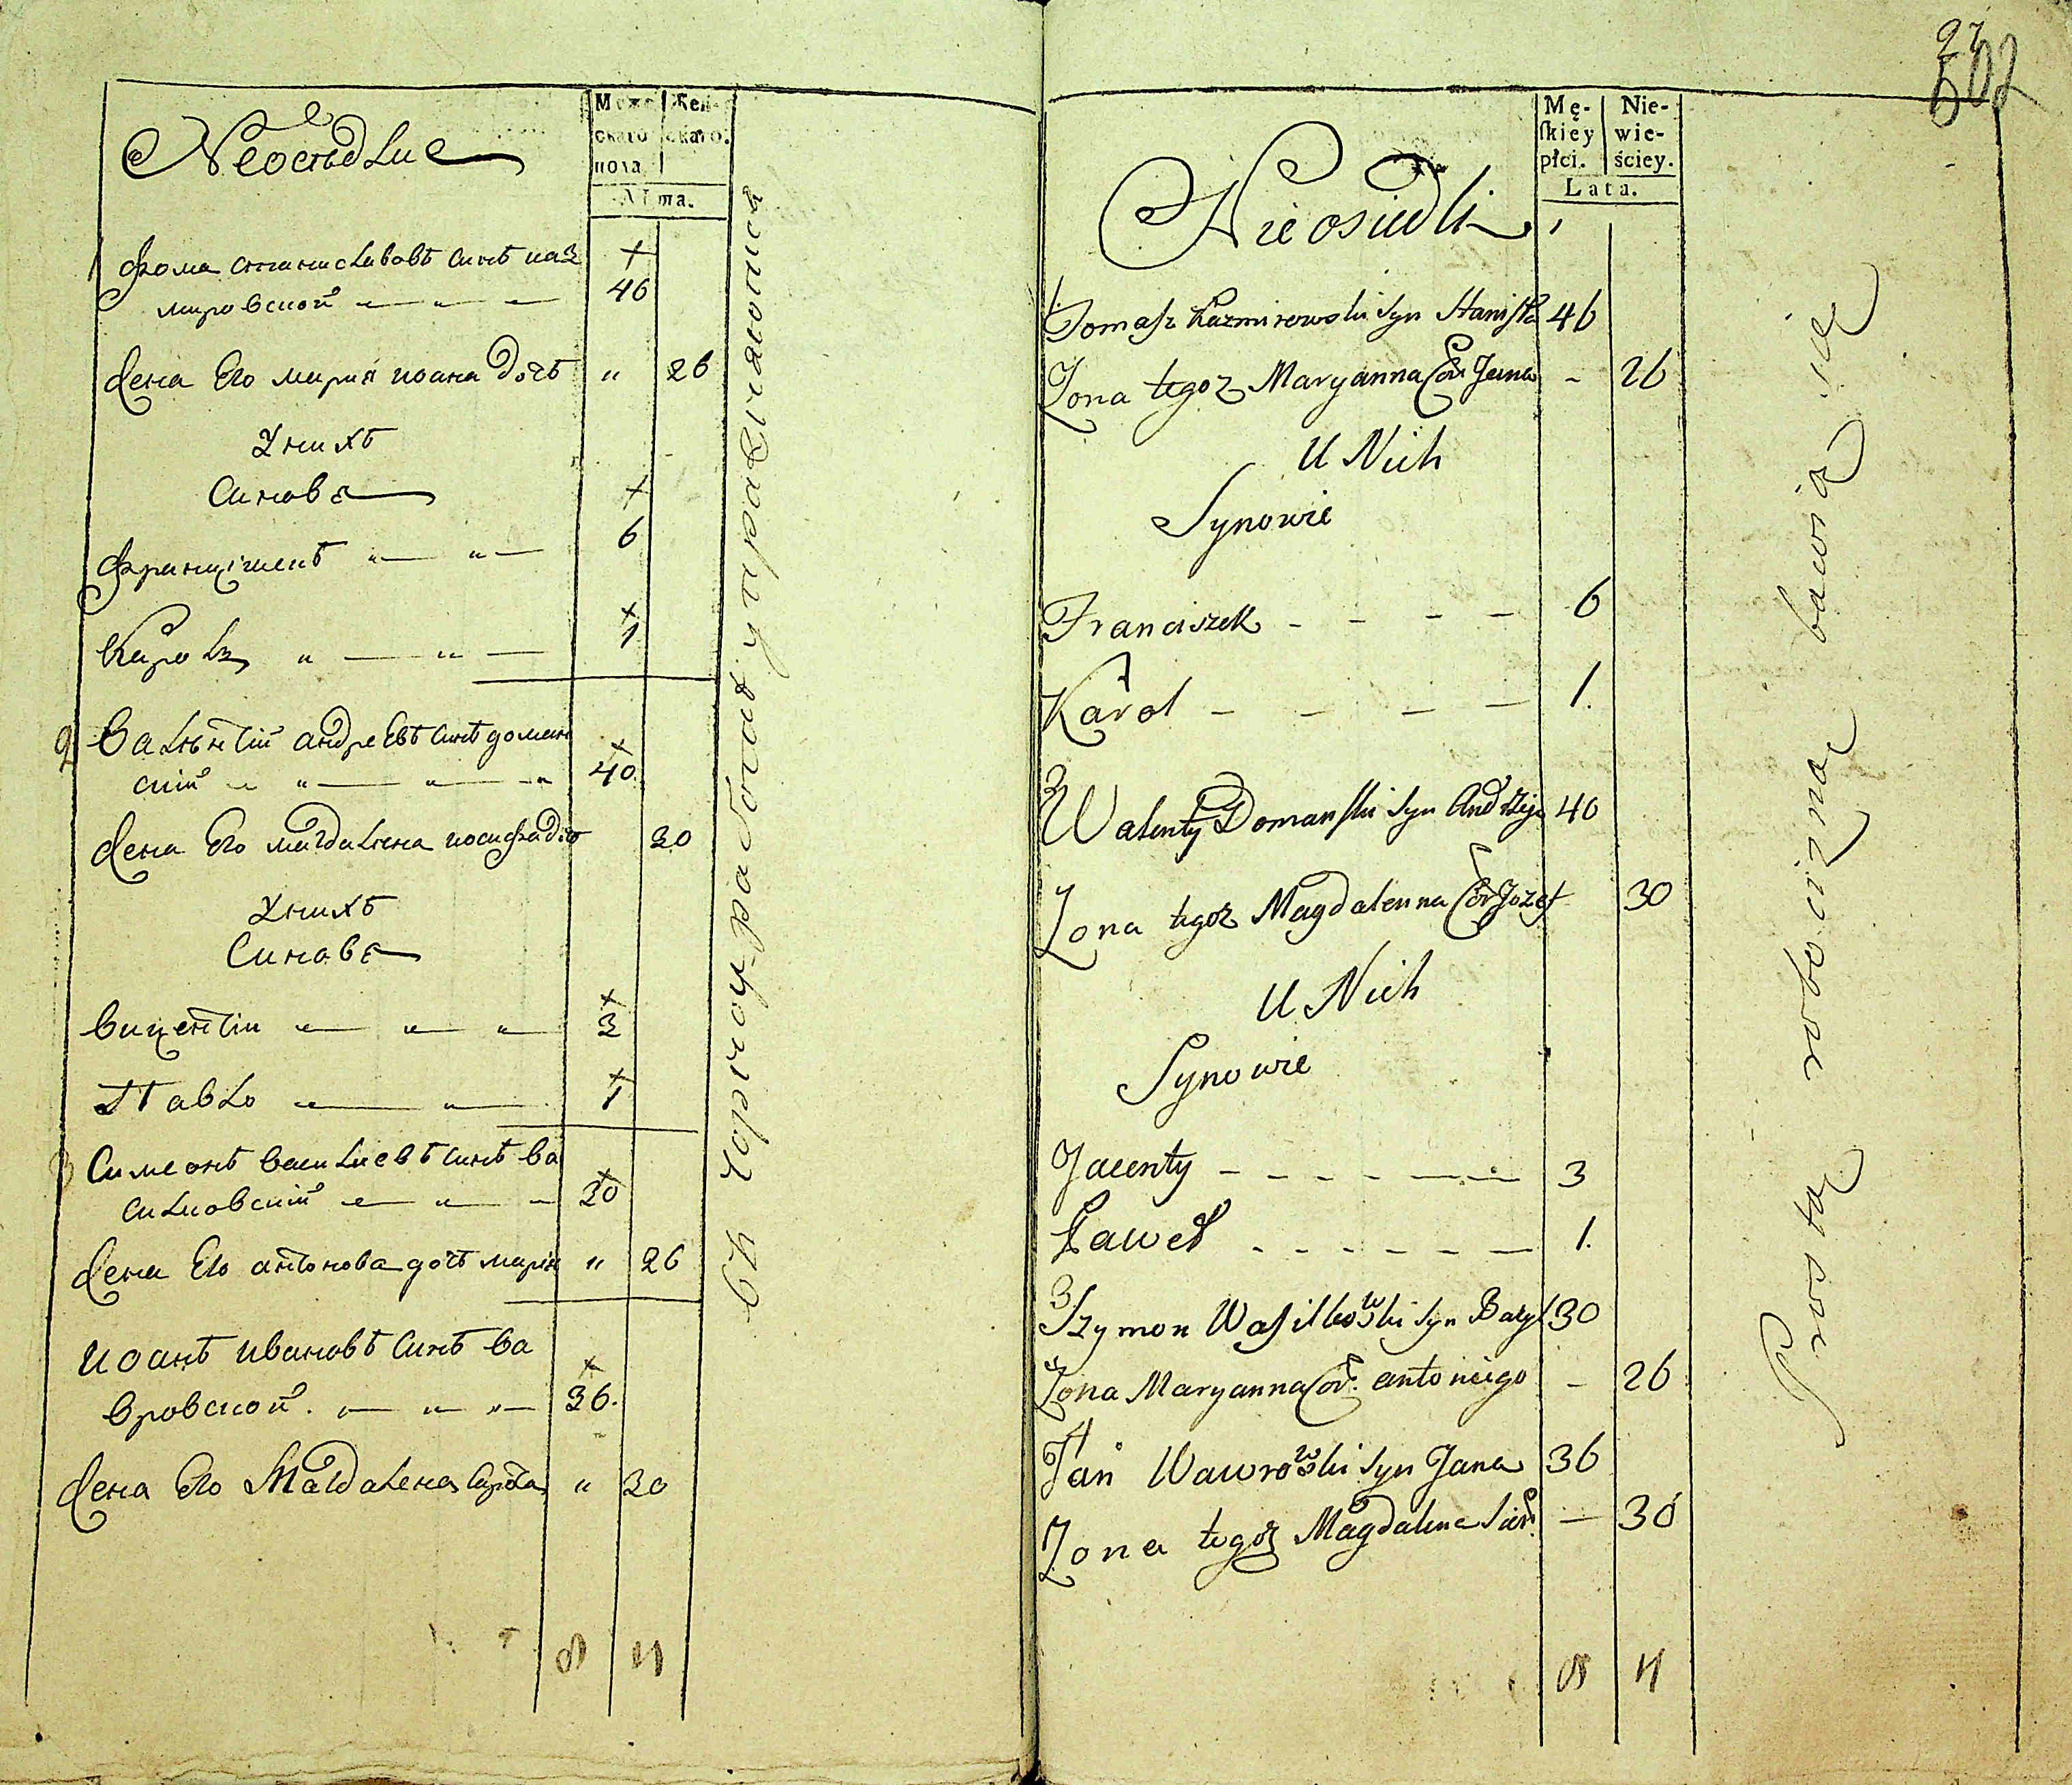 Неосѣдлие
Мужескаго пола
Женскаго.
Лѣта.
1 Фома станиславовъ синъ каз
мировской
46
Жена Его мария иоана дочъ " 26
У нихъ
Синове
Францишекъ 6
Кароль 1
2 Валентiй андреевъ синъ доман
скiй 40
Жена Его магдалена иосифа дочъ 30
У нихъ
Синове
Вицентiи 3
Павло 1
3 Симеонъ василиевъ синъ ва
силковскiй 30
Жена Его антонова дочъ марiя " 26
Иоанъ ивановъ синъ ва
вровской 36.
Жена Его Магдалена " 30
8 4
работою упражняются
602
Mę-
ſkiey
płci.
Nie-
wie-
ściey.
Lata.
Nieosiedli
1 Tomasz Kazmirowski Syn Stanisła 46
Zona tegoz Maryanna Cór Jana - 26
U Nich
Synowie
Franciszek - - - - 6
Karol - - - - 1.
2 Walenty Domanski Syn Andrzeja 40
Zona tegoz Magdalenna Cór Jozef 30
U Nich
Synowie
Jacenty - - - - - - 3
Paweł - - - - - - 1.
3 Szymon Wasilkowski Syn Bazyl 30
Zona Maryanna Cór. antoniego - 26
4 Jan Wawrowski Syn Jana 36
Zona tegoz Magdalena - 30
8 4
Prostą robocizną bawią się